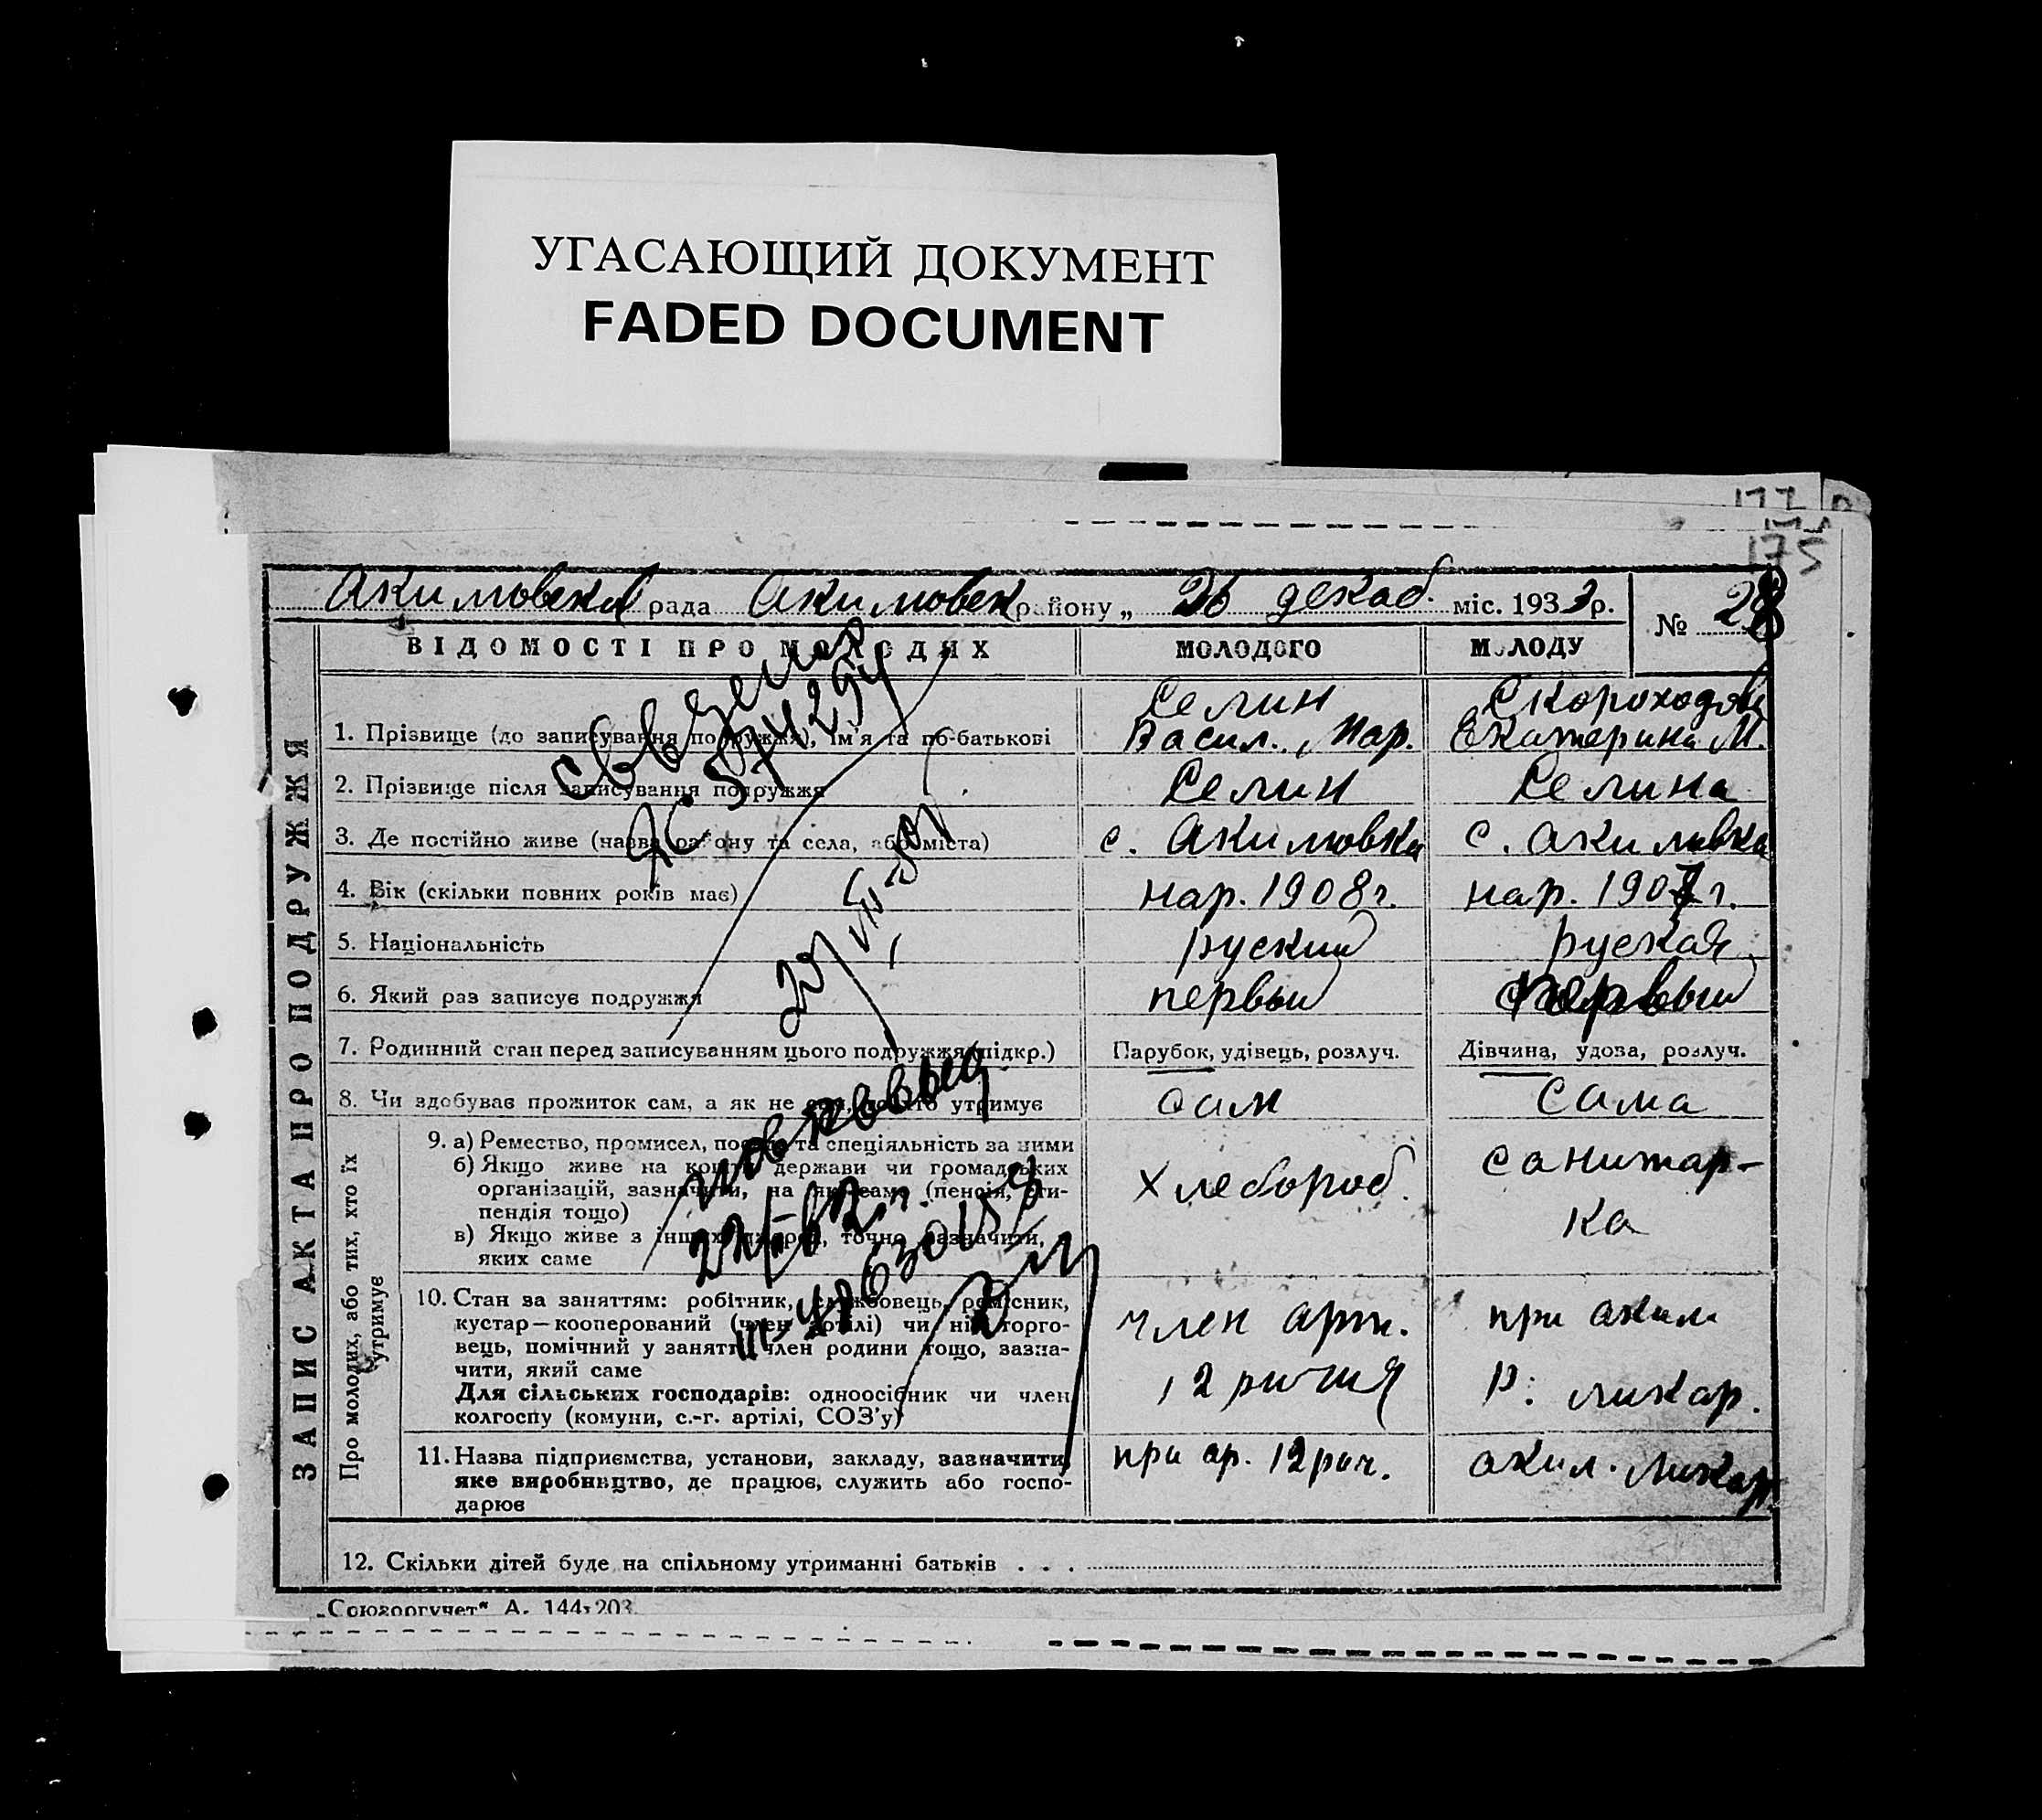 УГАСАЮЩИЙ ДОКУМЕНТ
FADED DOCUMENT
177
175
Акимовска рада Акимовск району „ 26 декаб. міс. 1933 р.
№ 28
ЗАПИС АКТА ПРО ПОДРУЖЖЯ
ВІДОМОСТІ ПРО МОЛОДИХ МОЛОДОГО МОЛОДУ
Селин Скороходова
1. Прізвище (до записування подружжя), ім'я та по-батькові Васил. Мар. Екатерина М.
2. Прізвище після записування подружжя Селин Селина
3. Де постійно живе (назва району та села, або міста) с. Акимовка с. Акимовка
4. Вік (скільки повних років має) нар. 1908 г. нар. 1907 г.
5. Національність руский руская
6. Який раз записує подружжя первый первый
7. Родинний стан перед записуванням цього подружжя (підкр.) Парубок, удівець, розлуч. Дівчина, удова, розлуч.
8. Чи здобуває прожиток сам, а як не сам, то хто утримує сам сама
Про молодих, або тих, хто їх утримує
9. а) Ремество, промисел, посада та спеціяльність за ними
б) Якщо живе на кошти держави чи громадських
організацій, зазначити, на які саме (пенсія, сти-
пендія тощо)
в) Якщо живе з інших джерел, точно зазначити,
яких саме
хлебороб.
санитар-
ка
10. Стан за заняттям: робітник, службовець, ремісник,
кустар—кооперований (член артілі) чи ні, торго-
вець, помічний у занятті член родини тощо, зазна-
чити, який саме
Для сільських господарів: одноосібник чи член
колгоспу (комуни, с.-г. артілі, СОЗ'у)
член арт.
12 риччя
при аким
р. ликар.
11. Назва підприємства, установи, закладу, зазначити,
яке виробництво, де працює, служить або госпо-
дарює
при ар. 12 рич.
аким. ликар.
12. Скільки дітей буде на спільному утриманні батьків . . .
„Союзоргучет“ А. 144-203